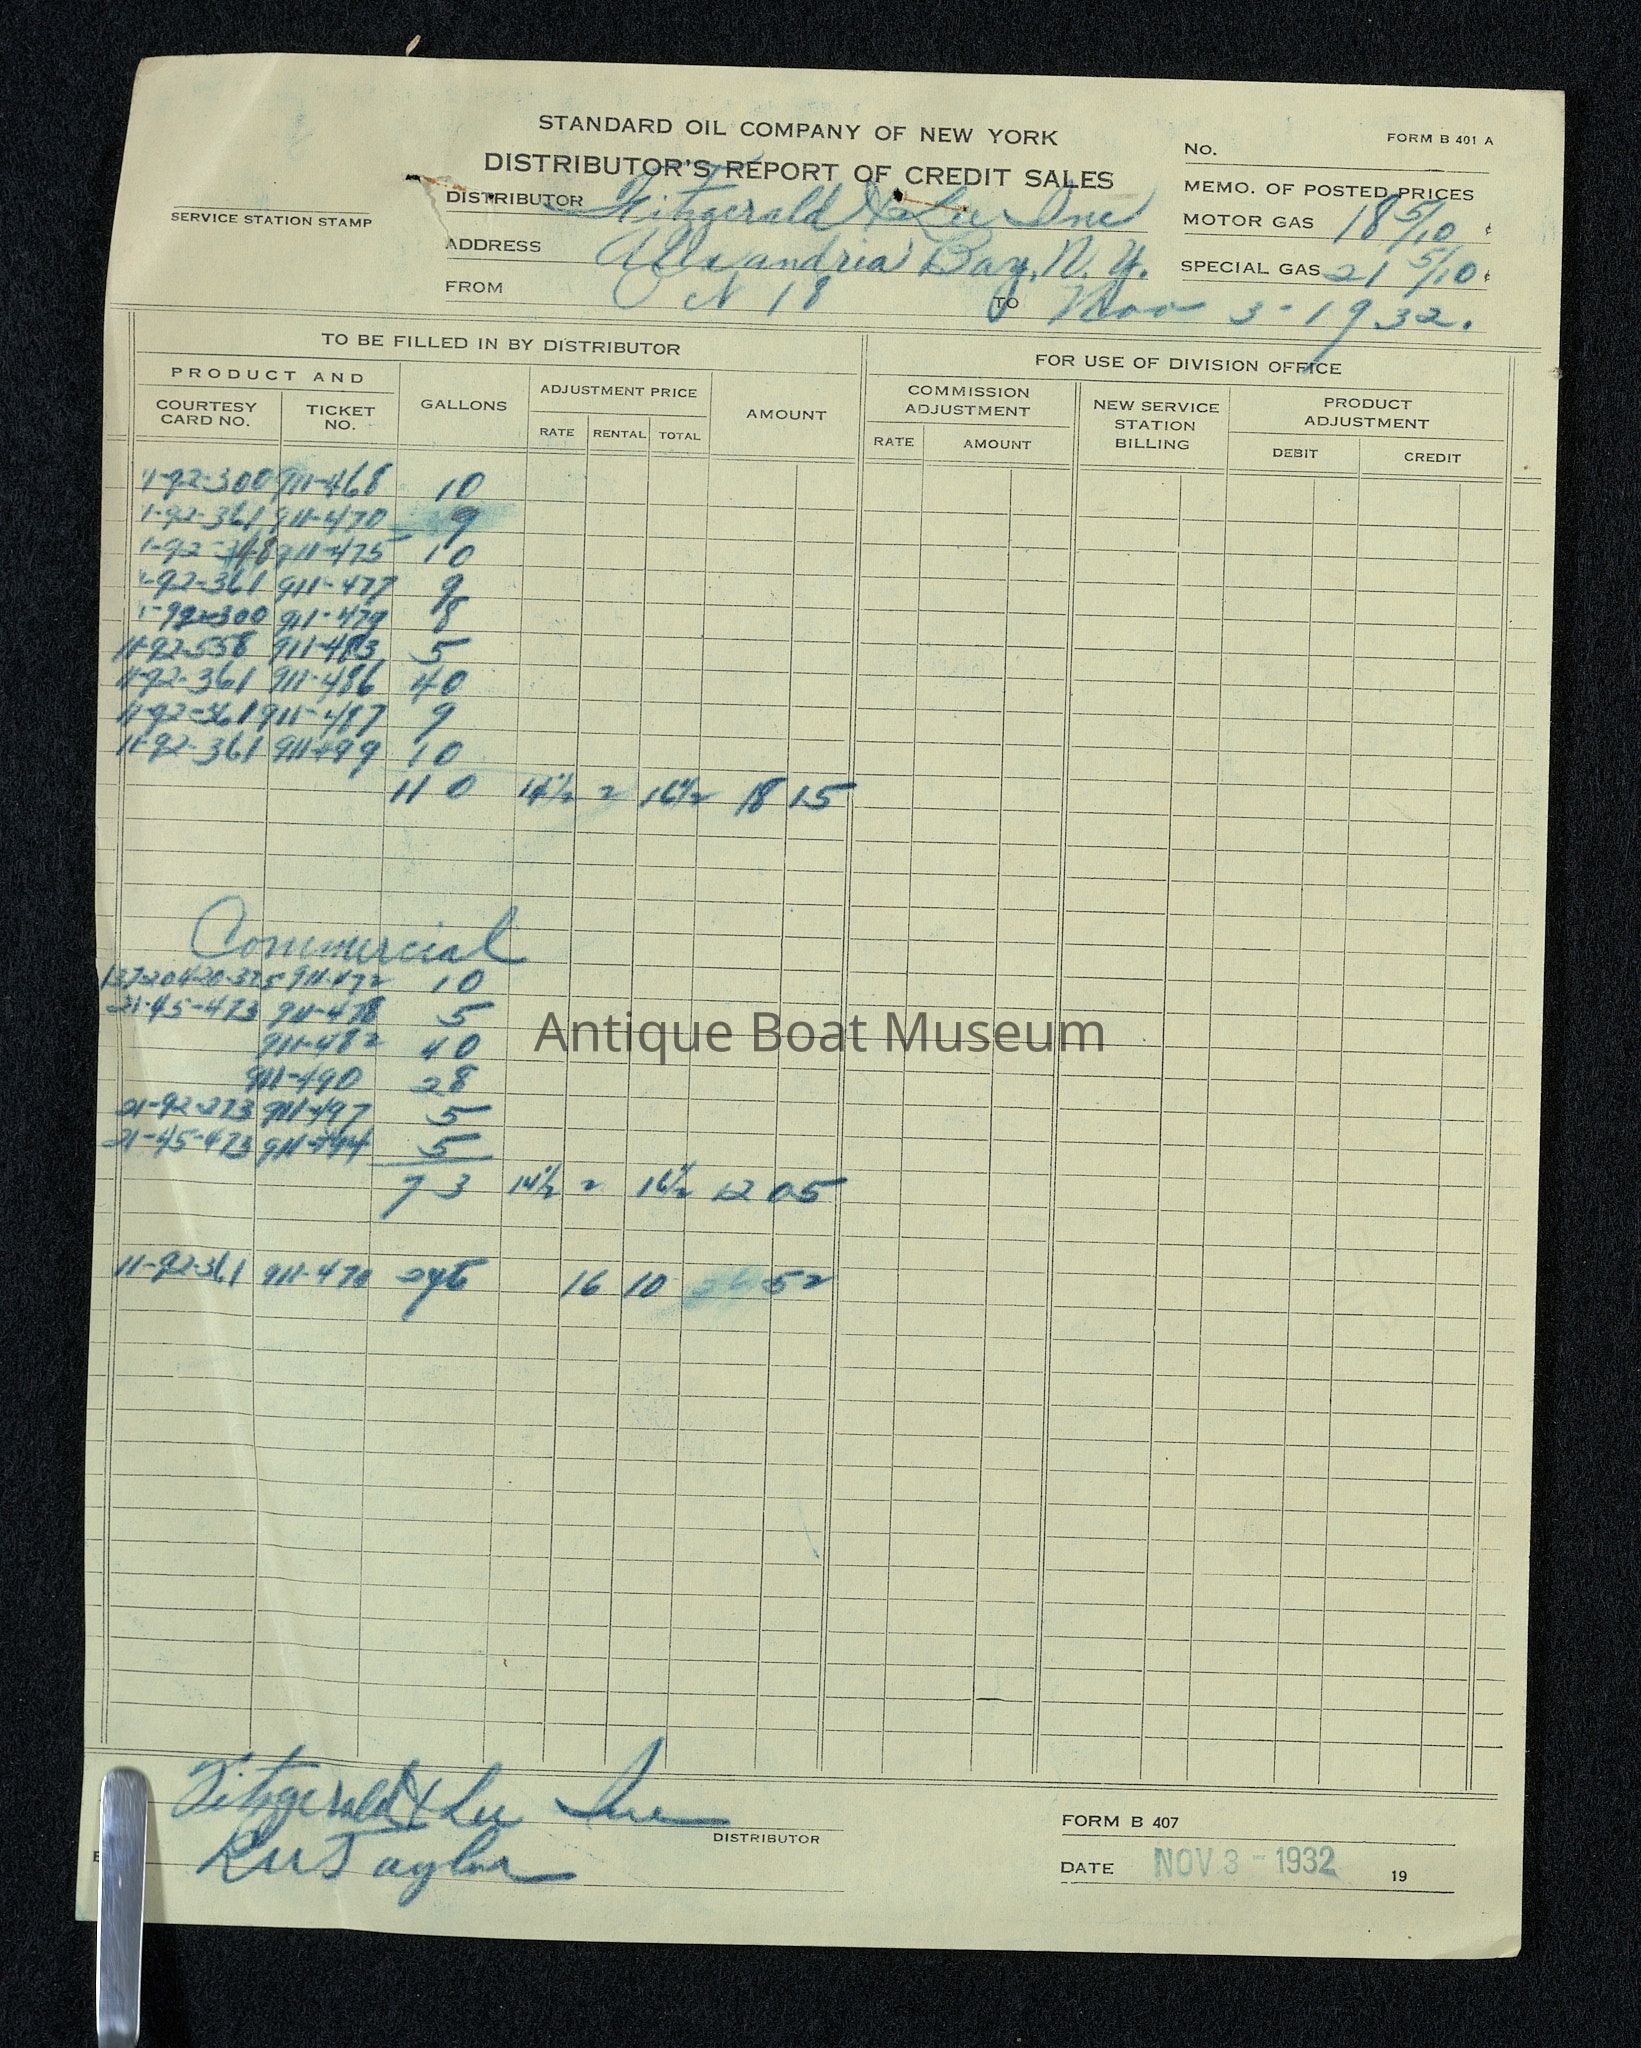 STANDARD OIL COMPANY OF NEW YORK
FORM B 401 A
DISTRIBUTOR'S REPORT OF CREDIT SALES
NO.
MEMO. OF POSTED PRICES
SERVICE STATION STAMP
DISTRIBUTOR Fitzgerald & Lee Inc
MOTOR GAS 18 5/10 ¢
ADDRESS Alexandria Bay, N. Y.
SPECIAL GAS 21 5/10 ¢
FROM Oct 18 TO Nov 3-1932.
TO BE FILLED IN BY DISTRIBUTOR
FOR USE OF DIVISION OFFICE
PRODUCT AND
COURTESY CARD NO.
TICKET NO.
GALLONS
ADJUSTMENT PRICE
RATE RENTAL TOTAL
AMOUNT
COMMISSION ADJUSTMENT
RATE AMOUNT
NEW SERVICE STATION BILLING
PRODUCT ADJUSTMENT
DEBIT CREDIT
1-92-300 911-468 10
1-92-361 911-470 9
1-92- 911-475 10
-92-361 911-477 9
1-92-300 911-479 8
11-92-558 911-483 5
11-92-361 911-486 40
11-92-361 911-487 9
11-92-361 911-499 10
110 14½ 2 16½ 18 15
Commercial
911-472 10
21-45-473 911-478 5
911-482 20
911-490 28
21-92-273 911-497 5
21-45-473 911-494 5
73 14½ 2 16½ 12 05
11-92-361 911-470 16 10 52
Fitzgerald & Lee Inc
DISTRIBUTOR
Taylor
FORM B 407
DATE NOV 3 - 1932 19
Antique Boat Museum